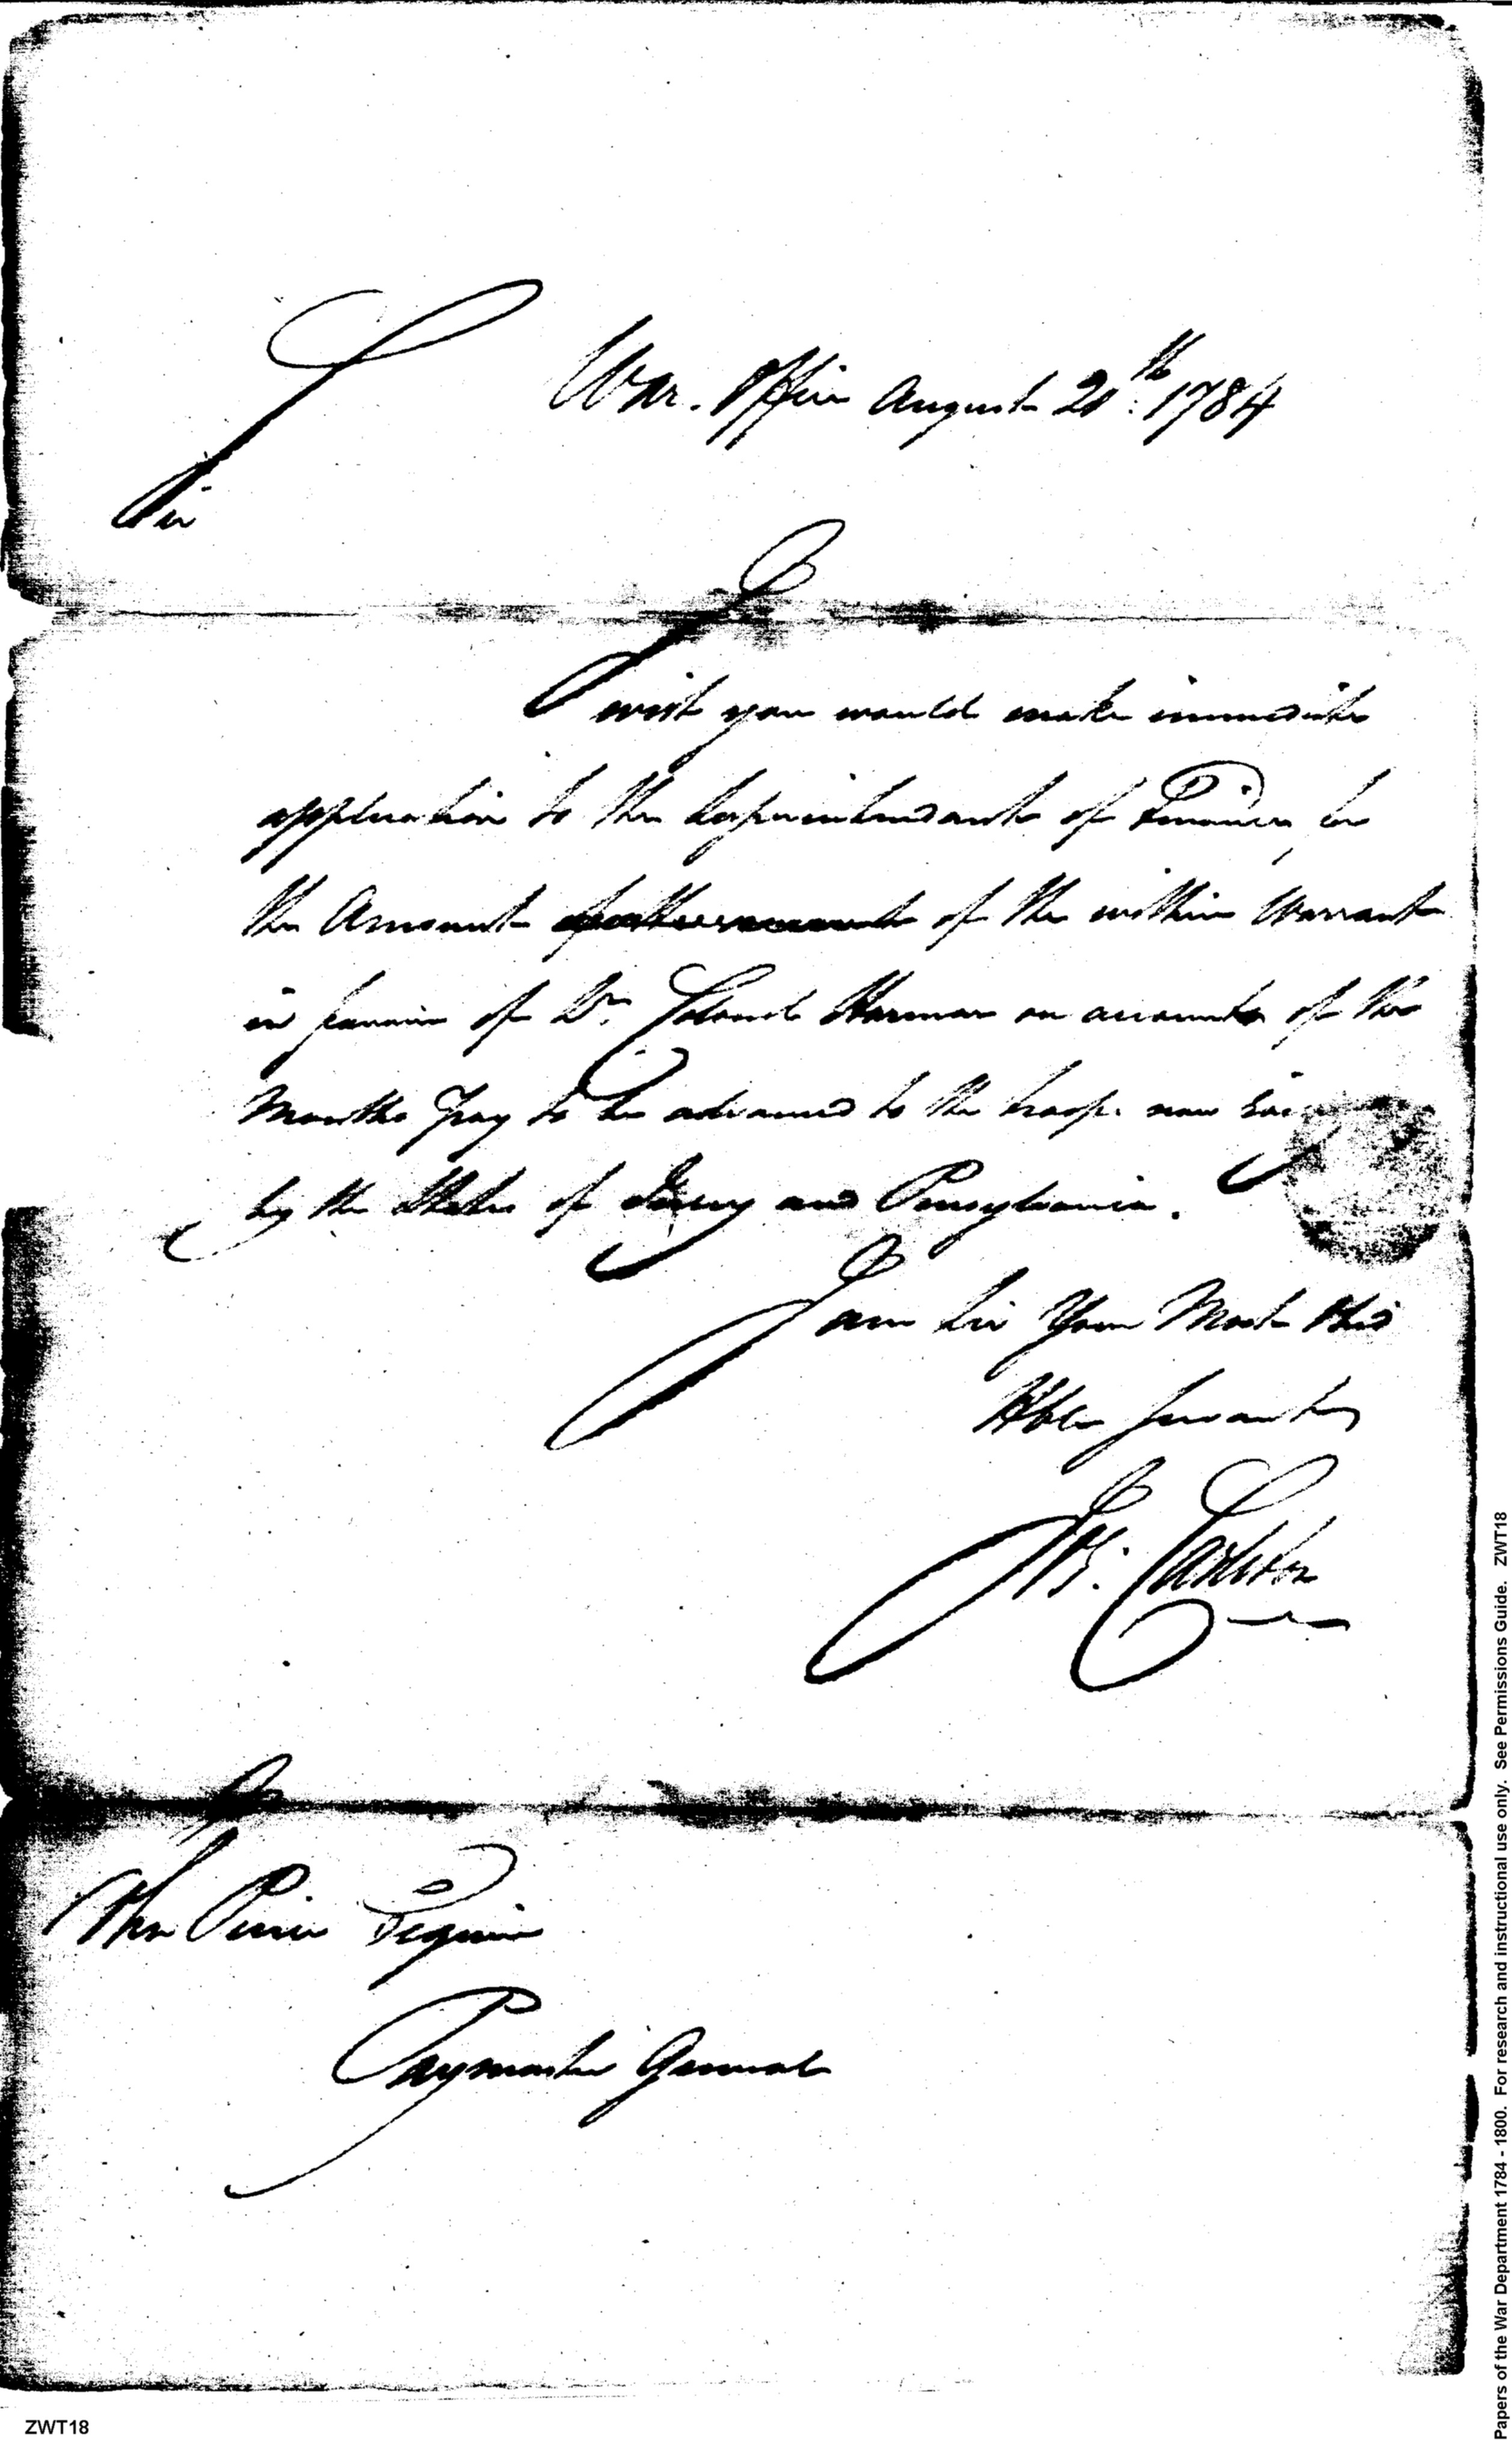 War. Office August 20th: 1784
Sir
I wish you would make immediate
application to the Superintendant of Finance, for
the Amount of the within Warrant
in favour of Lt. Colonel Harmar on account of the
Months Pay to be advanced to the troops now
by the States of Jersey and Pensylvania.
I am Sir Your Most Obd
Hble Servant
Js. Carleton
Paymaster General
ZWT18
Papers of the War Department 1784 - 1800. For research and instructional use only. See Permissions Guide. ZWT18